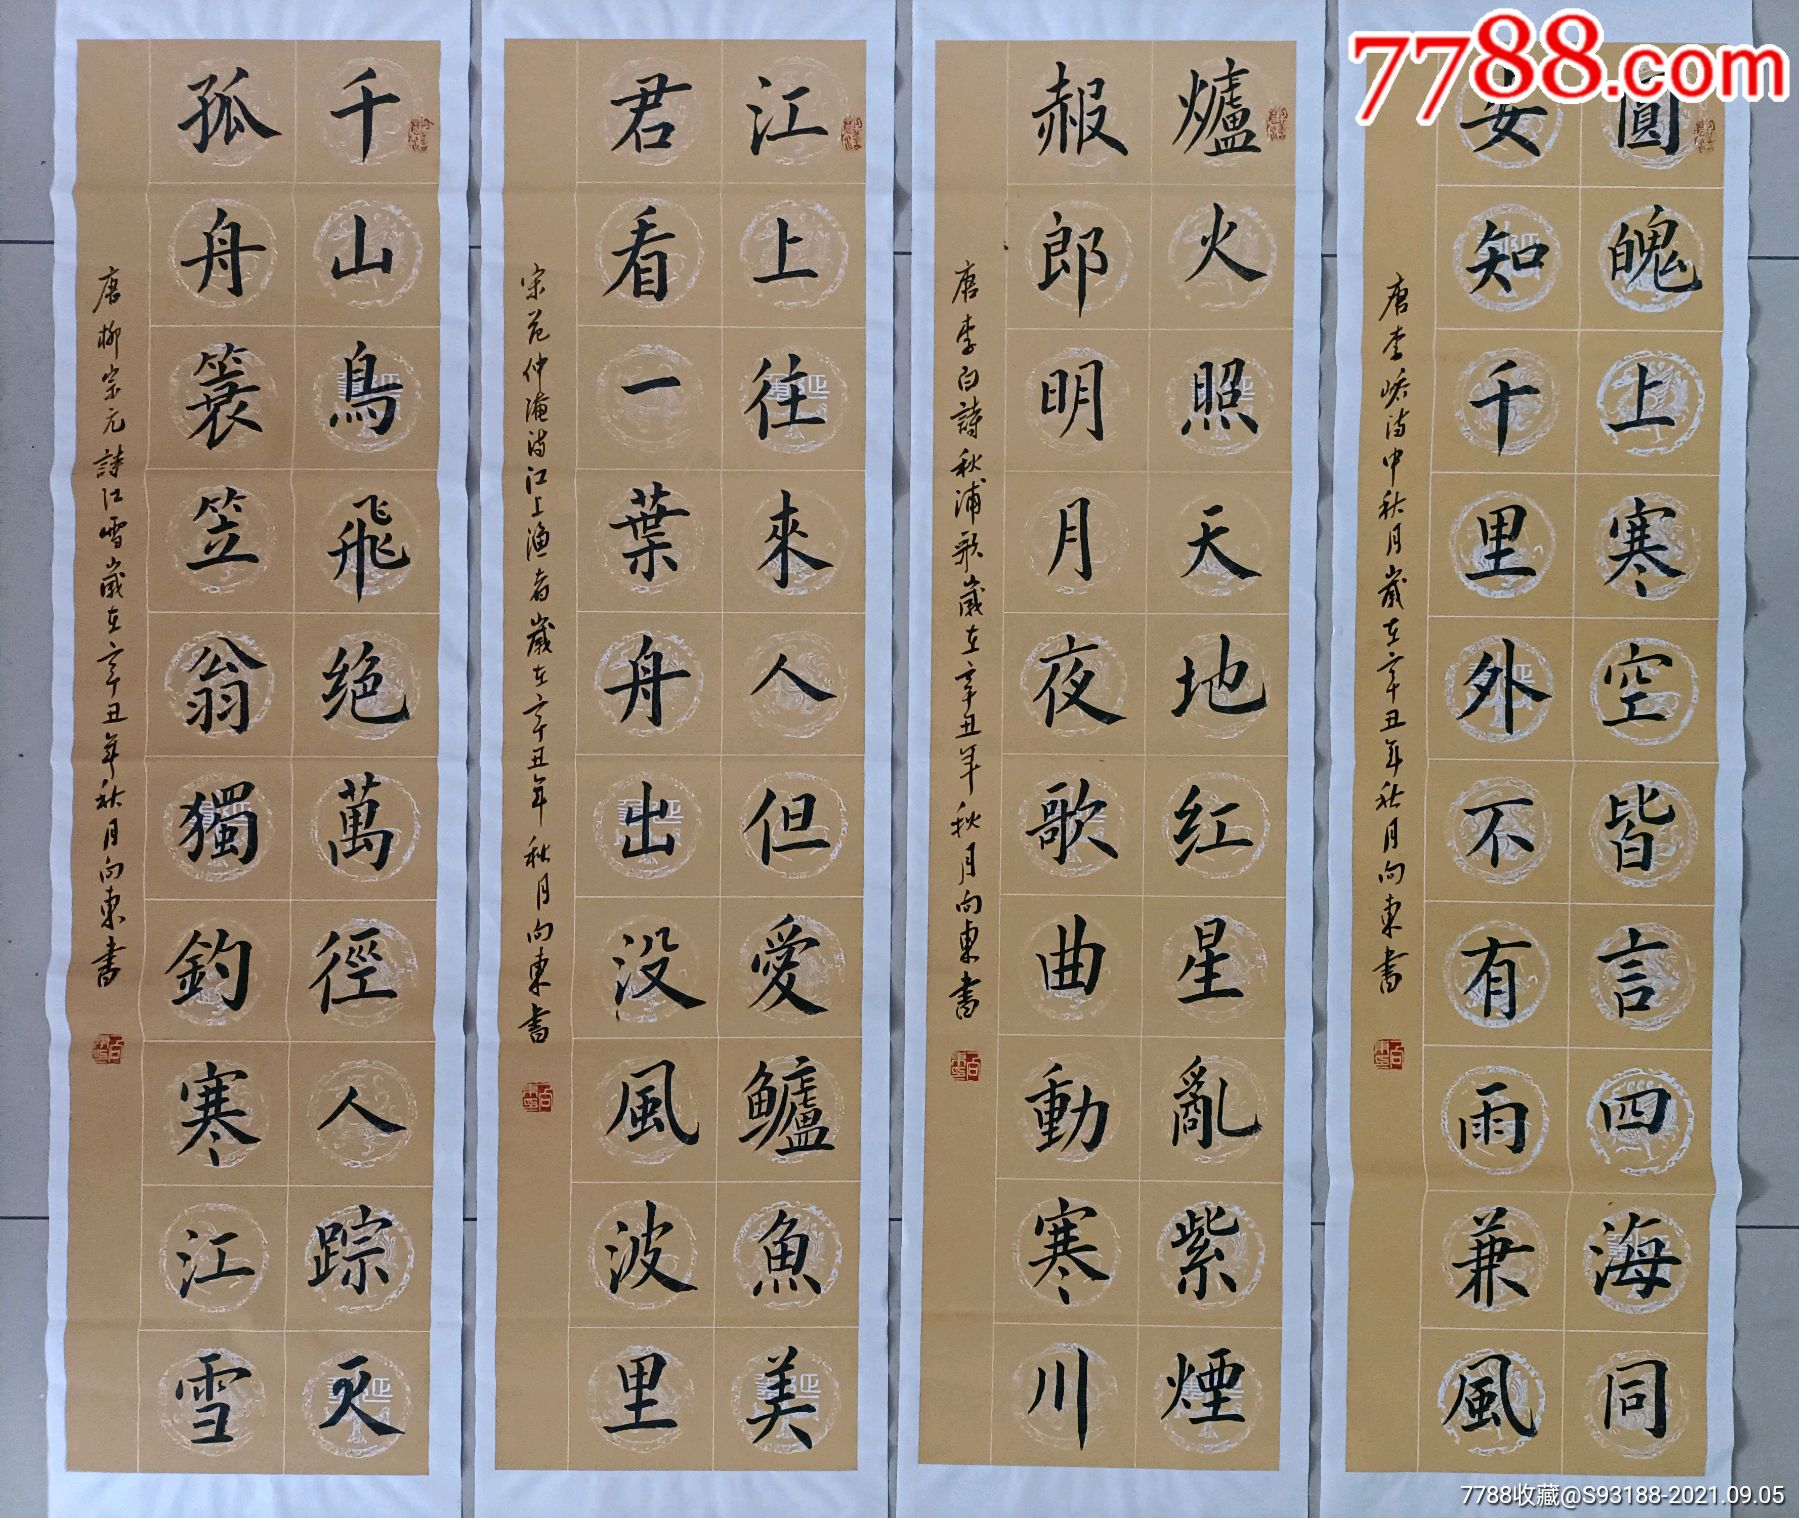 7788.com
圓魄上寒空皆言四海同
安知千里外不有雨兼風
唐李峤诗中秋月歲在辛丑年秋月向東書
爐火照天地红星亂紫煙
赧郎明月夜歌曲動寒川
唐李白詩秋浦歌歲在辛丑年秋月向東書
江上往來人但愛鱸魚美
君看一葉舟出没風波里
宋范仲淹诗江上渔者歲在辛丑年秋月向東書
千山鳥飛绝萬徑人踪灭
孤舟簑笠翁獨釣寒江雪
唐柳宗元詩江雪歲在辛丑年秋月向東書
7788收藏@S93188-2021.09.05